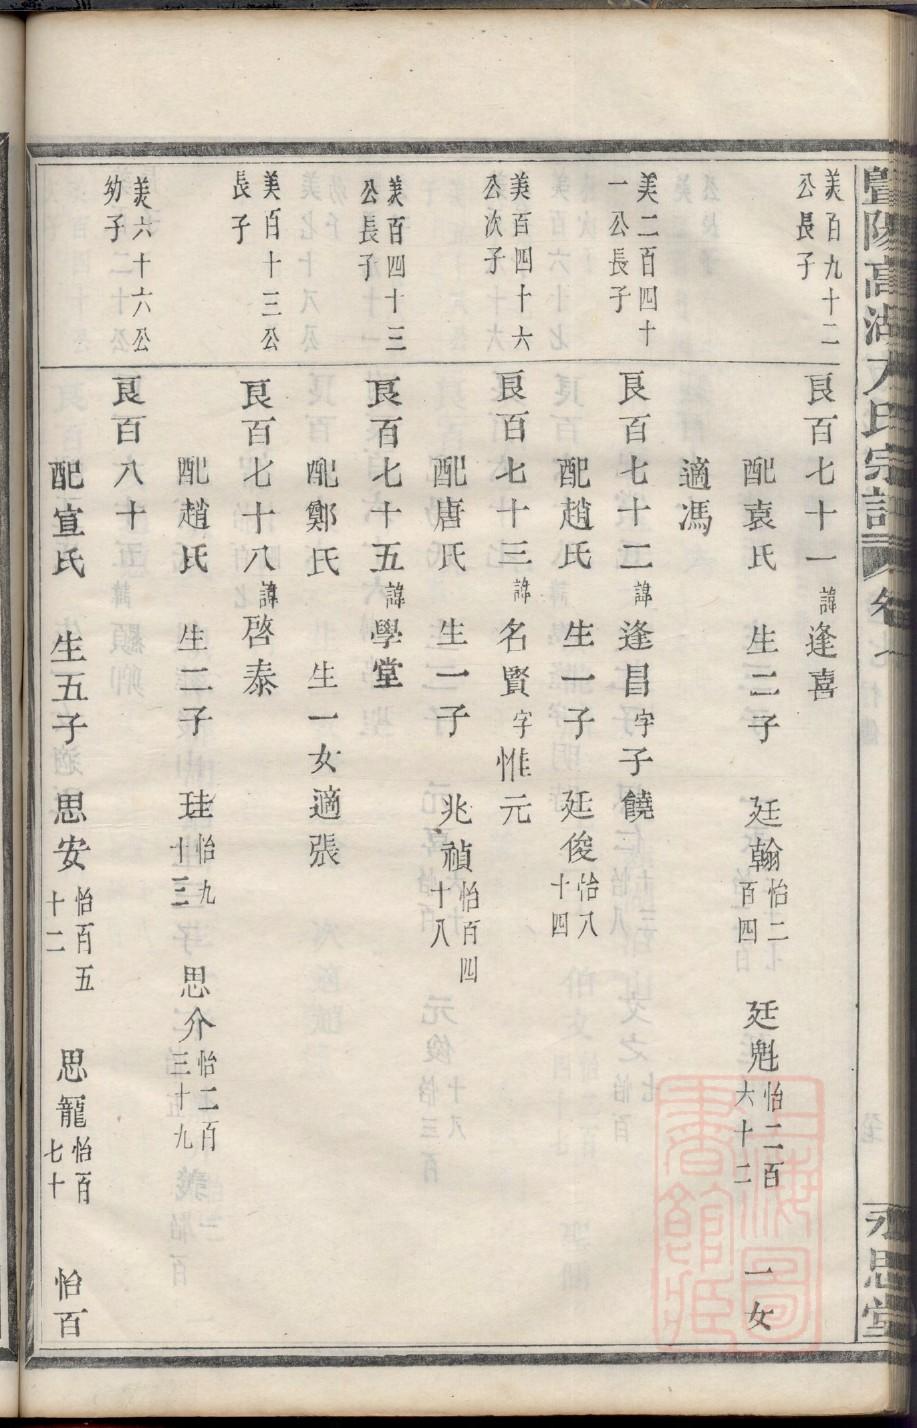 暨陽高湖方氏宗譜 卷七 永思堂
美百九十二公長子
良百七十一諱逢喜
配袁氏 生二子 廷翰怡二百四 廷魁怡二百六十二 一女
適馮
美二百四十一公長子
良百七十二諱逢昌字子饒
配趙氏 生一子 廷俊怡八十四
美百四十六公次子
良百七十三諱名賢字惟元
配唐氏 生一子 兆禎怡百四十八
美百四十三公長子
良百七十五諱學堂
配鄭氏 生一女適張
美百十三公長子
良百七十八諱啓泰
配趙氏 生二子 珪怡九十三 思介怡二百三十九
美六十六公幼子
良百八十五諱顯卿
配宣氏 生五子 思安怡百五十二 思寵怡百七十 怡百